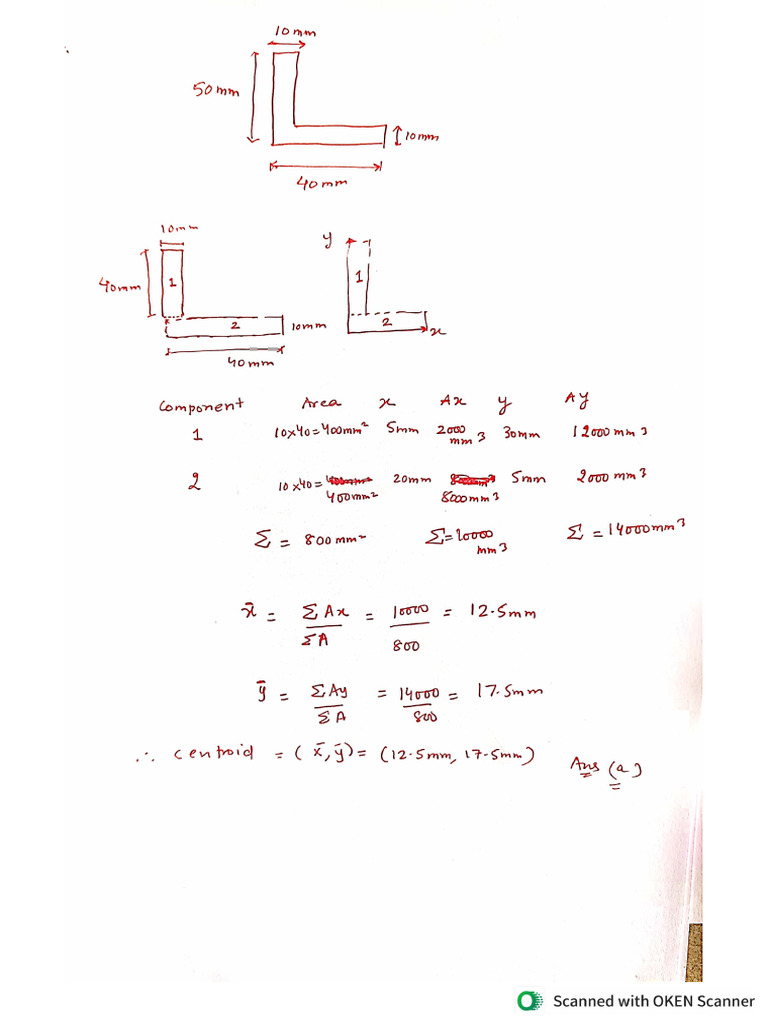 10mm
50mm
10mm
40mm
10mm
y
40mm
1
1
2
10mm
2
x
40mm
Component Area x Ax y Ay
1 10×40=400mm² 5mm 2000 mm³ 30mm 12000 mm³
2 10×40= 400mm² 20mm 8000mm³ 5mm 2000 mm³
Σ = 800mm² Σ=10000 mm³ Σ = 14000mm³
x̄ = ΣAx/ΣA = 10000/800 = 12.5mm
ȳ = ΣAy/ΣA = 14000/800 = 17.5mm
∴ centroid = (x̄, ȳ) = (12.5mm, 17.5mm) Ans (a)
Scanned with OKEN Scanner